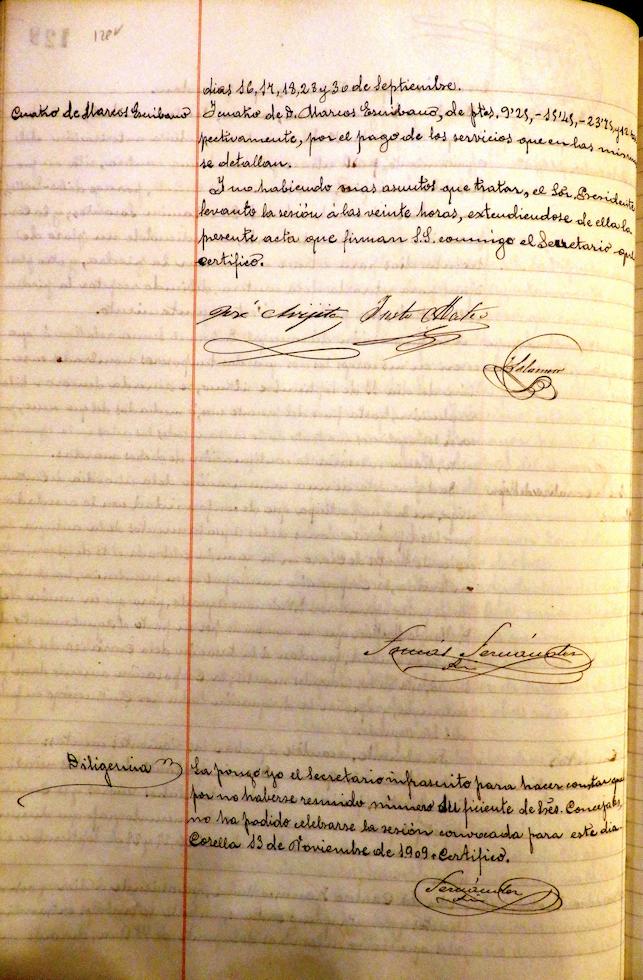 128v
dias 16, 17, 18, 23 y 30 de Septiembre.
Cuatro de Marcos Escribano
Y cuatro de D. Marcos Escribano, de ptas. 9'25, - 15'45, - 23'75, y 12
pectivamente, por el pago de los servicios que en las mismas
se detallan.
Y no habiendo mas asuntos que tratar, el Sr. Presidente
levanto la sesión á las veinte horas, extendiendose de ella la
presente acta que firman S.S. conmigo el Secretario que
certifico.
José Justo Mateo
Salomon
Tomás Fernández
Diligencia
La pongo yo el Secretario infrascrito para hacer constar que
por no haberse reunido número suficiente de Sres. Concejales,
no ha podido celebrarse la sesión convocada para este dia.
Corella 13 de Noviembre de 1909. Certifico.
Fernández